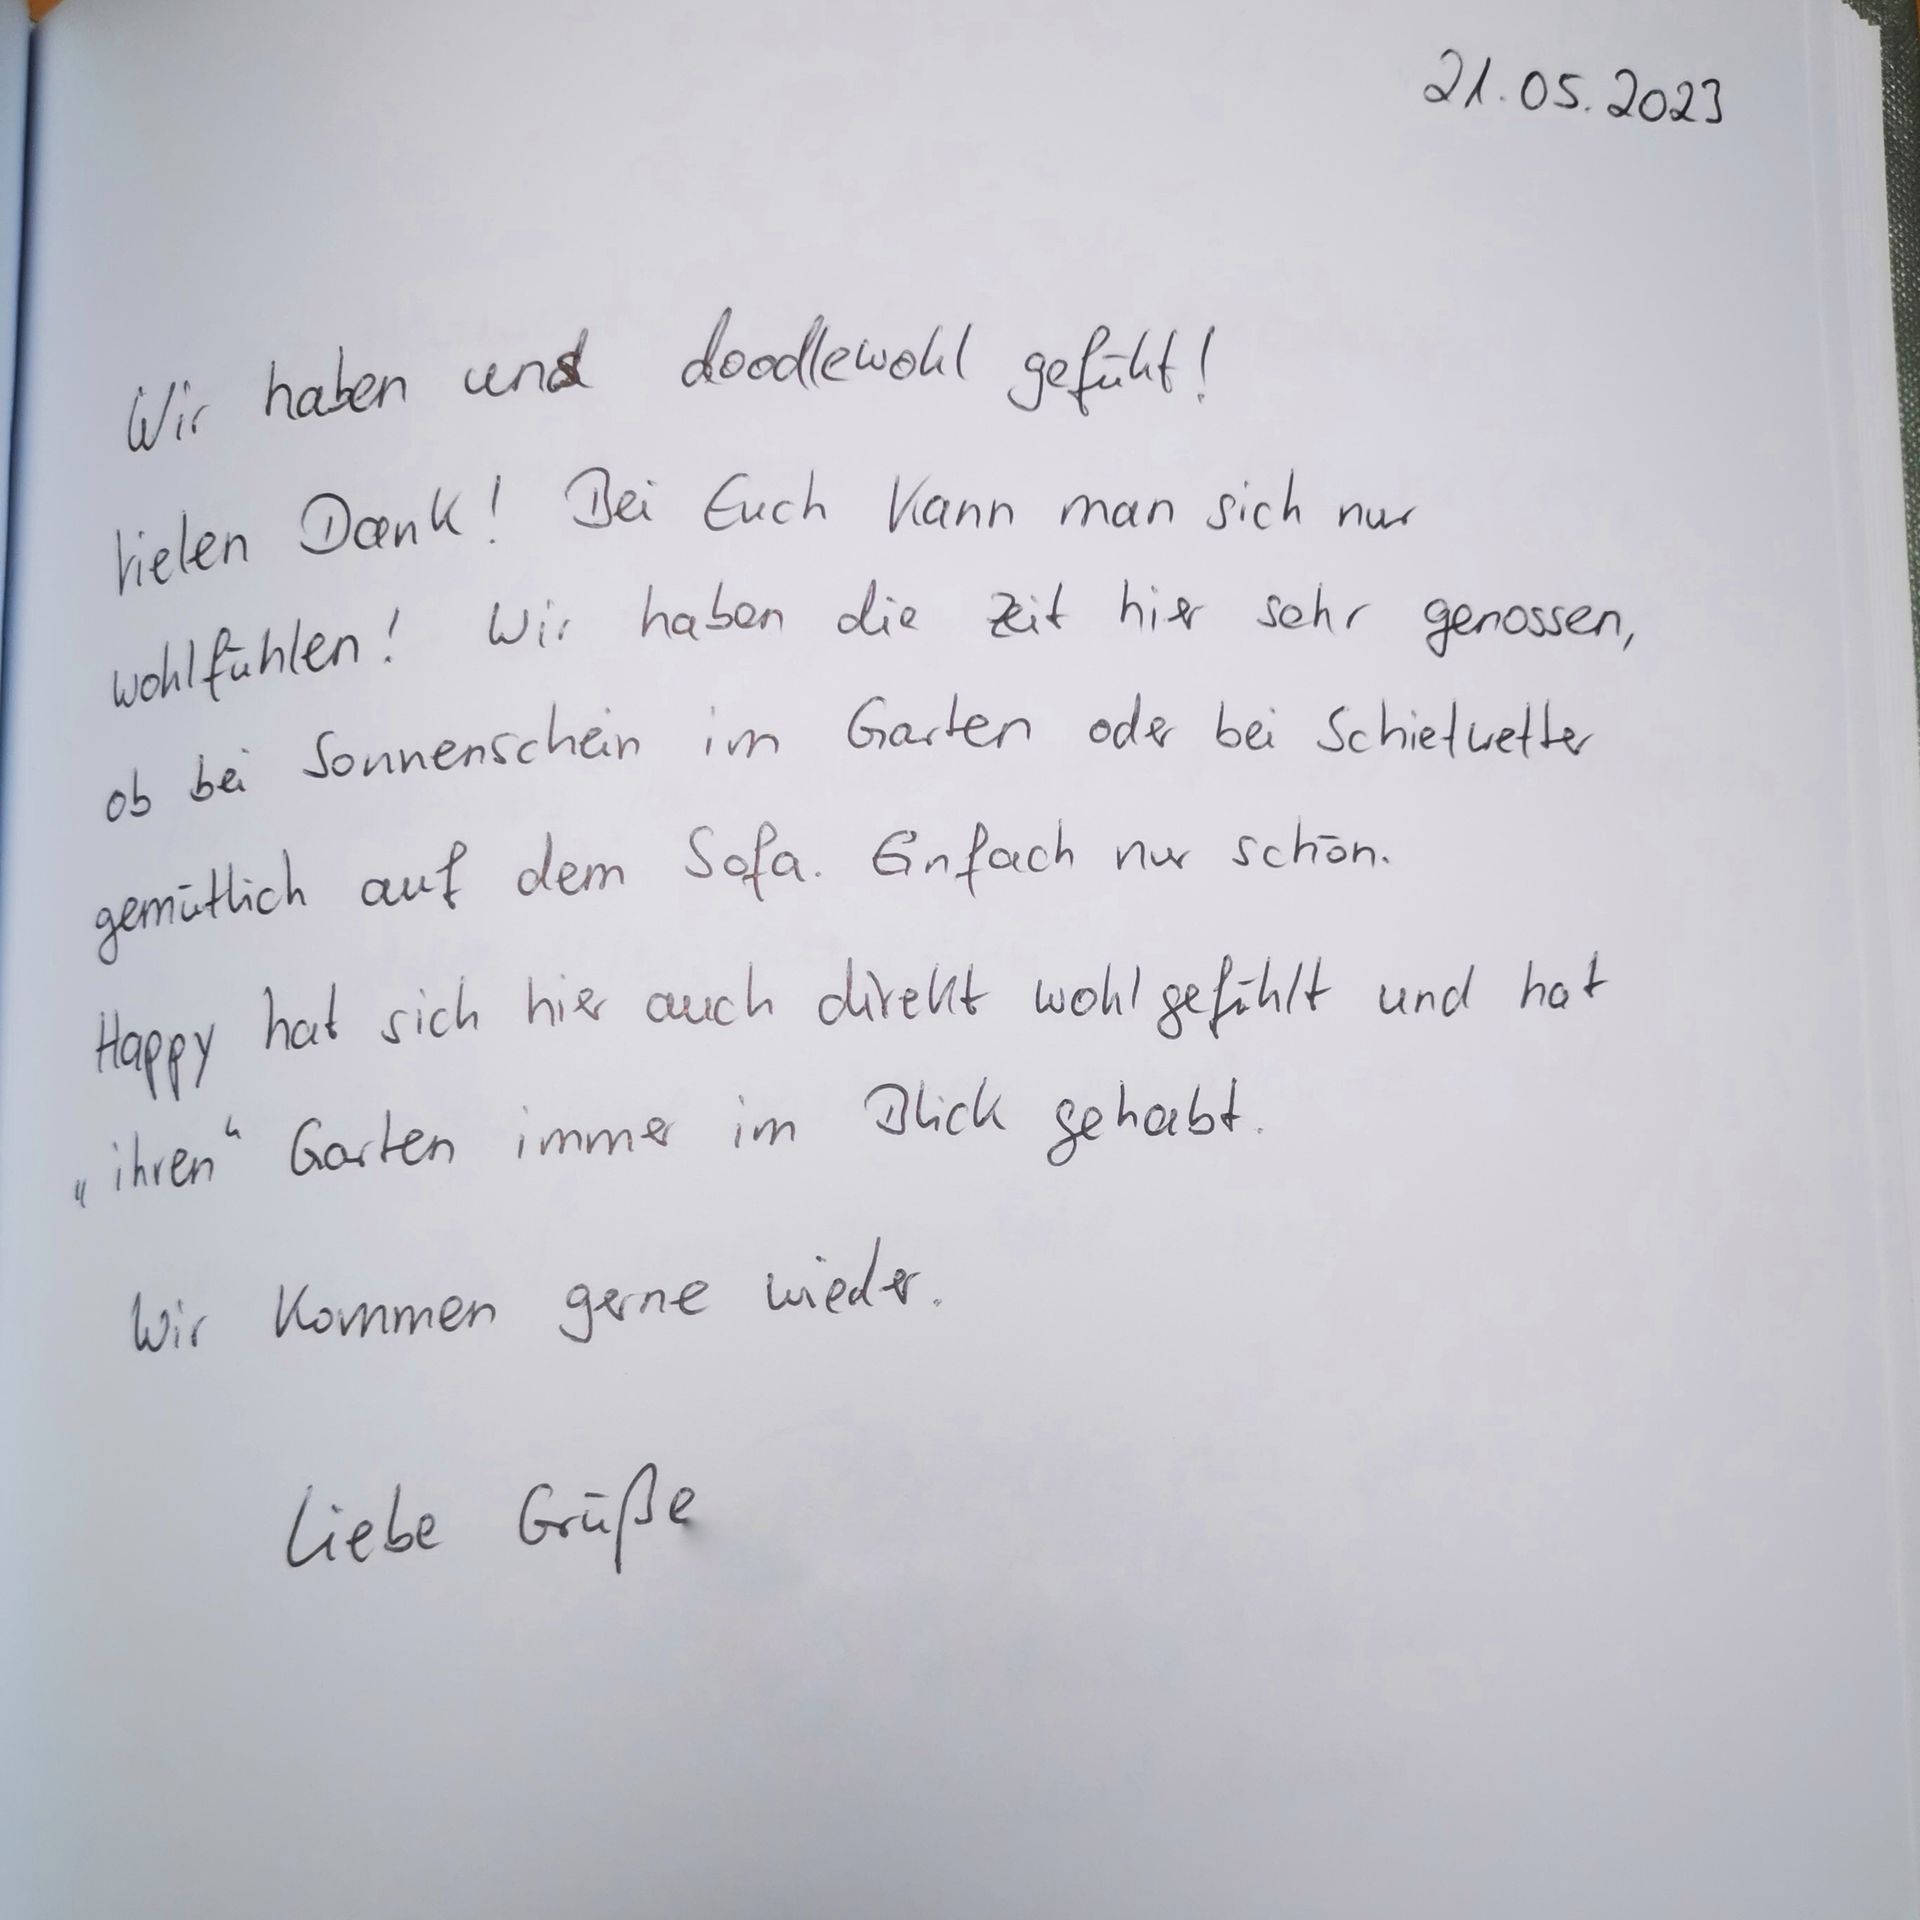 21.05.2023
Wir haben uns doodlewohl gefühlt!
Vielen Dank! Bei Euch kann man sich nur
wohlfühlen! Wir haben die Zeit hier sehr genossen,
ob bei Sonnenschein im Garten oder bei Schietwetter
gemütlich auf dem Sofa. Einfach nur schön.
Happy hat sich hier auch direkt wohlgefühlt und hat
„ihren“ Garten immer im Blick gehabt.
Wir kommen gerne wieder.
Liebe Grüße